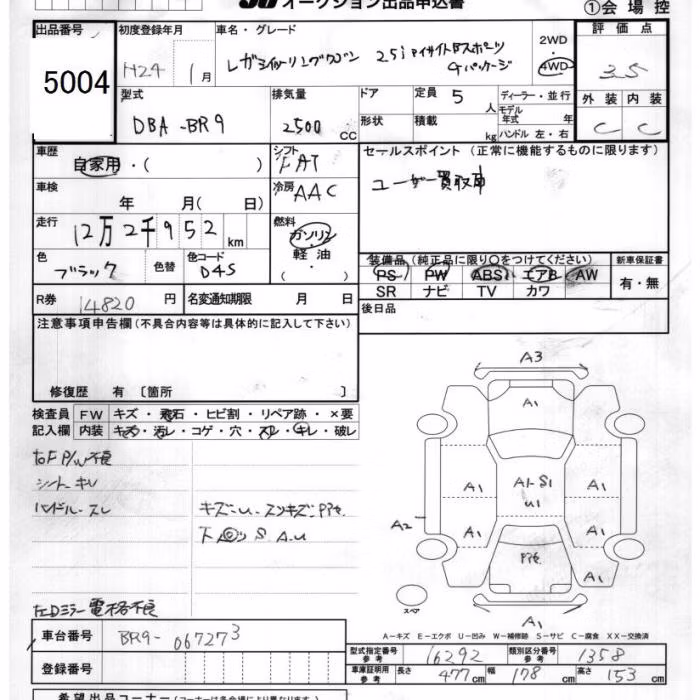 オークション出品申込書
①会場控
出品番号 5004
初度登録年月 H24 1月
車名・グレード レガシィツーリングワゴン 2.5i アイサイトBスポーツ Gパッケージ
2WD 4WD
評価点 3.5
外装 内装
C C
型式 DBA-BR9
排気量 2500 CC
ドア
定員 5 人
形状
積載 kg
ディーラー・並行
モデル年式 年
ハンドル 左・右
車歴 自家用・( )
シフト FAT
セールスポイント (正常に機能するものに限ります)
ユーザー買取車
車検 年 月( 日)
冷房 AAC
走行 12万2千952 km
燃料 ガソリン・軽油・( )
色 ブラック 色替
色コード D4S
装備品 (純正品に限り○をつけてください)
PS PW ABS エアB AW
SR ナビ TV カワ
新車保証書 有・無
R券 14820 円
名変通知期限 月 日
後日品
注意事項申告欄 (不具合内容等は具体的に記入して下さい)
修復歴 有 〔箇所 〕
検査員記入欄
FW キズ・飛石・ヒビ割・リペア跡・×要
内装 キズ・汚レ・コゲ・穴・スレ・キレ・破レ
右F P/W不良
シート キレ
ハンドル スレ
キズ・U・スリキズ・
S A.U
左Dミラー 電格不良
A3
A1
A1・S1
U1
A1
A1
A2
A1
A1
A1
スペア
A1
A―キズ E―エクボ U―凹み W―補修跡 S―サビ C―腐食 XX―交換済
車台番号 BR9-067273
登録番号
型式指定番号 参考 16292
類別区分番号 参考 1358
車庫証明用 参考 長さ 477cm 幅 178cm 高さ 153cm
希望出品コーナー